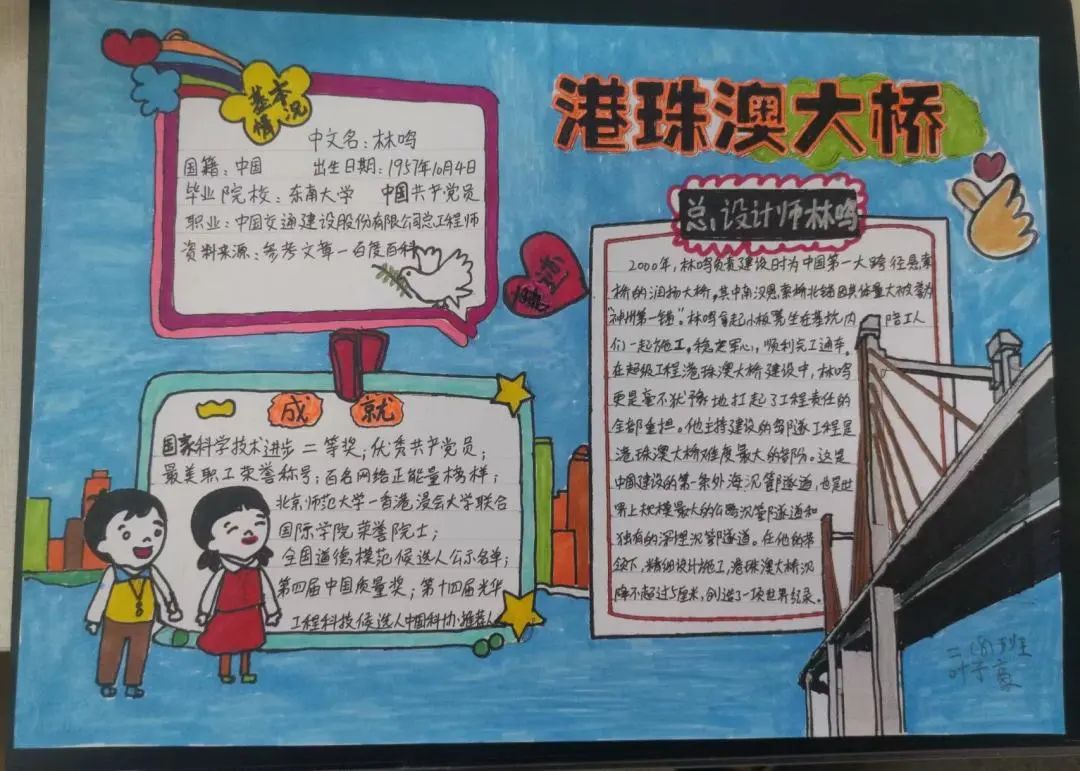 港珠澳大桥
基本
情况
中文名：林鸣
国籍：中国 出生日期：1957年10月4日
毕业院校：东南大学 中国共产党员
职业：中国交通建设股份有限公司总工程师
资料来源：参考文章—百度百科
成就
国家科学技术进步二等奖；优秀共产党员；
最美职工荣誉称号；百名网络正能量榜样；
北京师范大学—香港浸会大学联合
国际学院荣誉院士；
全国道德模范候选人公示名单；
第四届中国质量奖；第十四届光华
工程科技候选人中国科协·推荐人
总设计师林鸣
2000年，林鸣负责建设时为中国第一大跨径悬索
桥的润扬大桥。其中南汊悬索桥北锚因其体量大被誉为
“神州第一锚”。林鸣拿起小板凳坐在基坑内 陪工人
们一起施工。稳定军心，顺利完工通车。
在超级工程港珠澳大桥建设中，林鸣
更是毫不犹豫地扛起了工程责任的
全部重担。他主持建设的岛隧工程是
港珠澳大桥难度最大的部份。这是
中国建设的第一条外海沉管隧道，也是世
界上规模最大的公路沉管隧道和
独有的深埋沉管隧道。在他的带
领下，精细设计施工，港珠澳大桥沉
降不超过5厘米，创造了一项世界纪录。
二（8）班
叶子